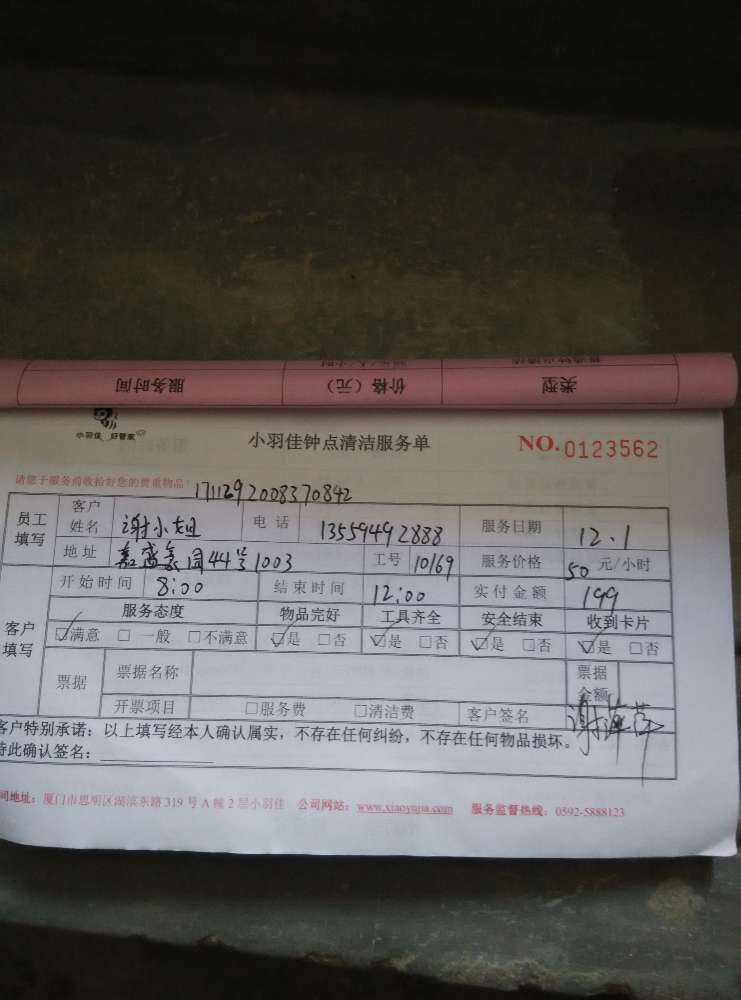 类型 价格（元） 服务时间
小羽佳 好管家
小羽佳钟点清洁服务单 NO.0123562
请您于服务前收拾好您的贵重物品！
1711292008370842
员工填写 客户姓名 谢小姐 电话 13559492888 服务日期 12.1
地址 嘉盛 44号1003 工号 10169 服务价格 50 元/小时
客户填写 开始时间 8:00 结束时间 12:00 实付金额 199
服务态度 物品完好 工具齐全 安全结束 收到卡片
☑满意 □一般 □不满意 ☑是 □否 ☑是 □否 ☑是 □否 ☑是 □否
票据 票据名称 票据金额
开票项目 □服务费 □清洁费 客户签名 谢萍
客户特别承诺：以上填写经本人确认属实，不存在任何纠纷，不存在任何物品损坏。
特此确认签名：
司地址：厦门市思明区湖滨东路 319 号 A 幢 2 层小羽佳 公司网站：www.xiaoyujia.com 服务监督热线：0592-5888123